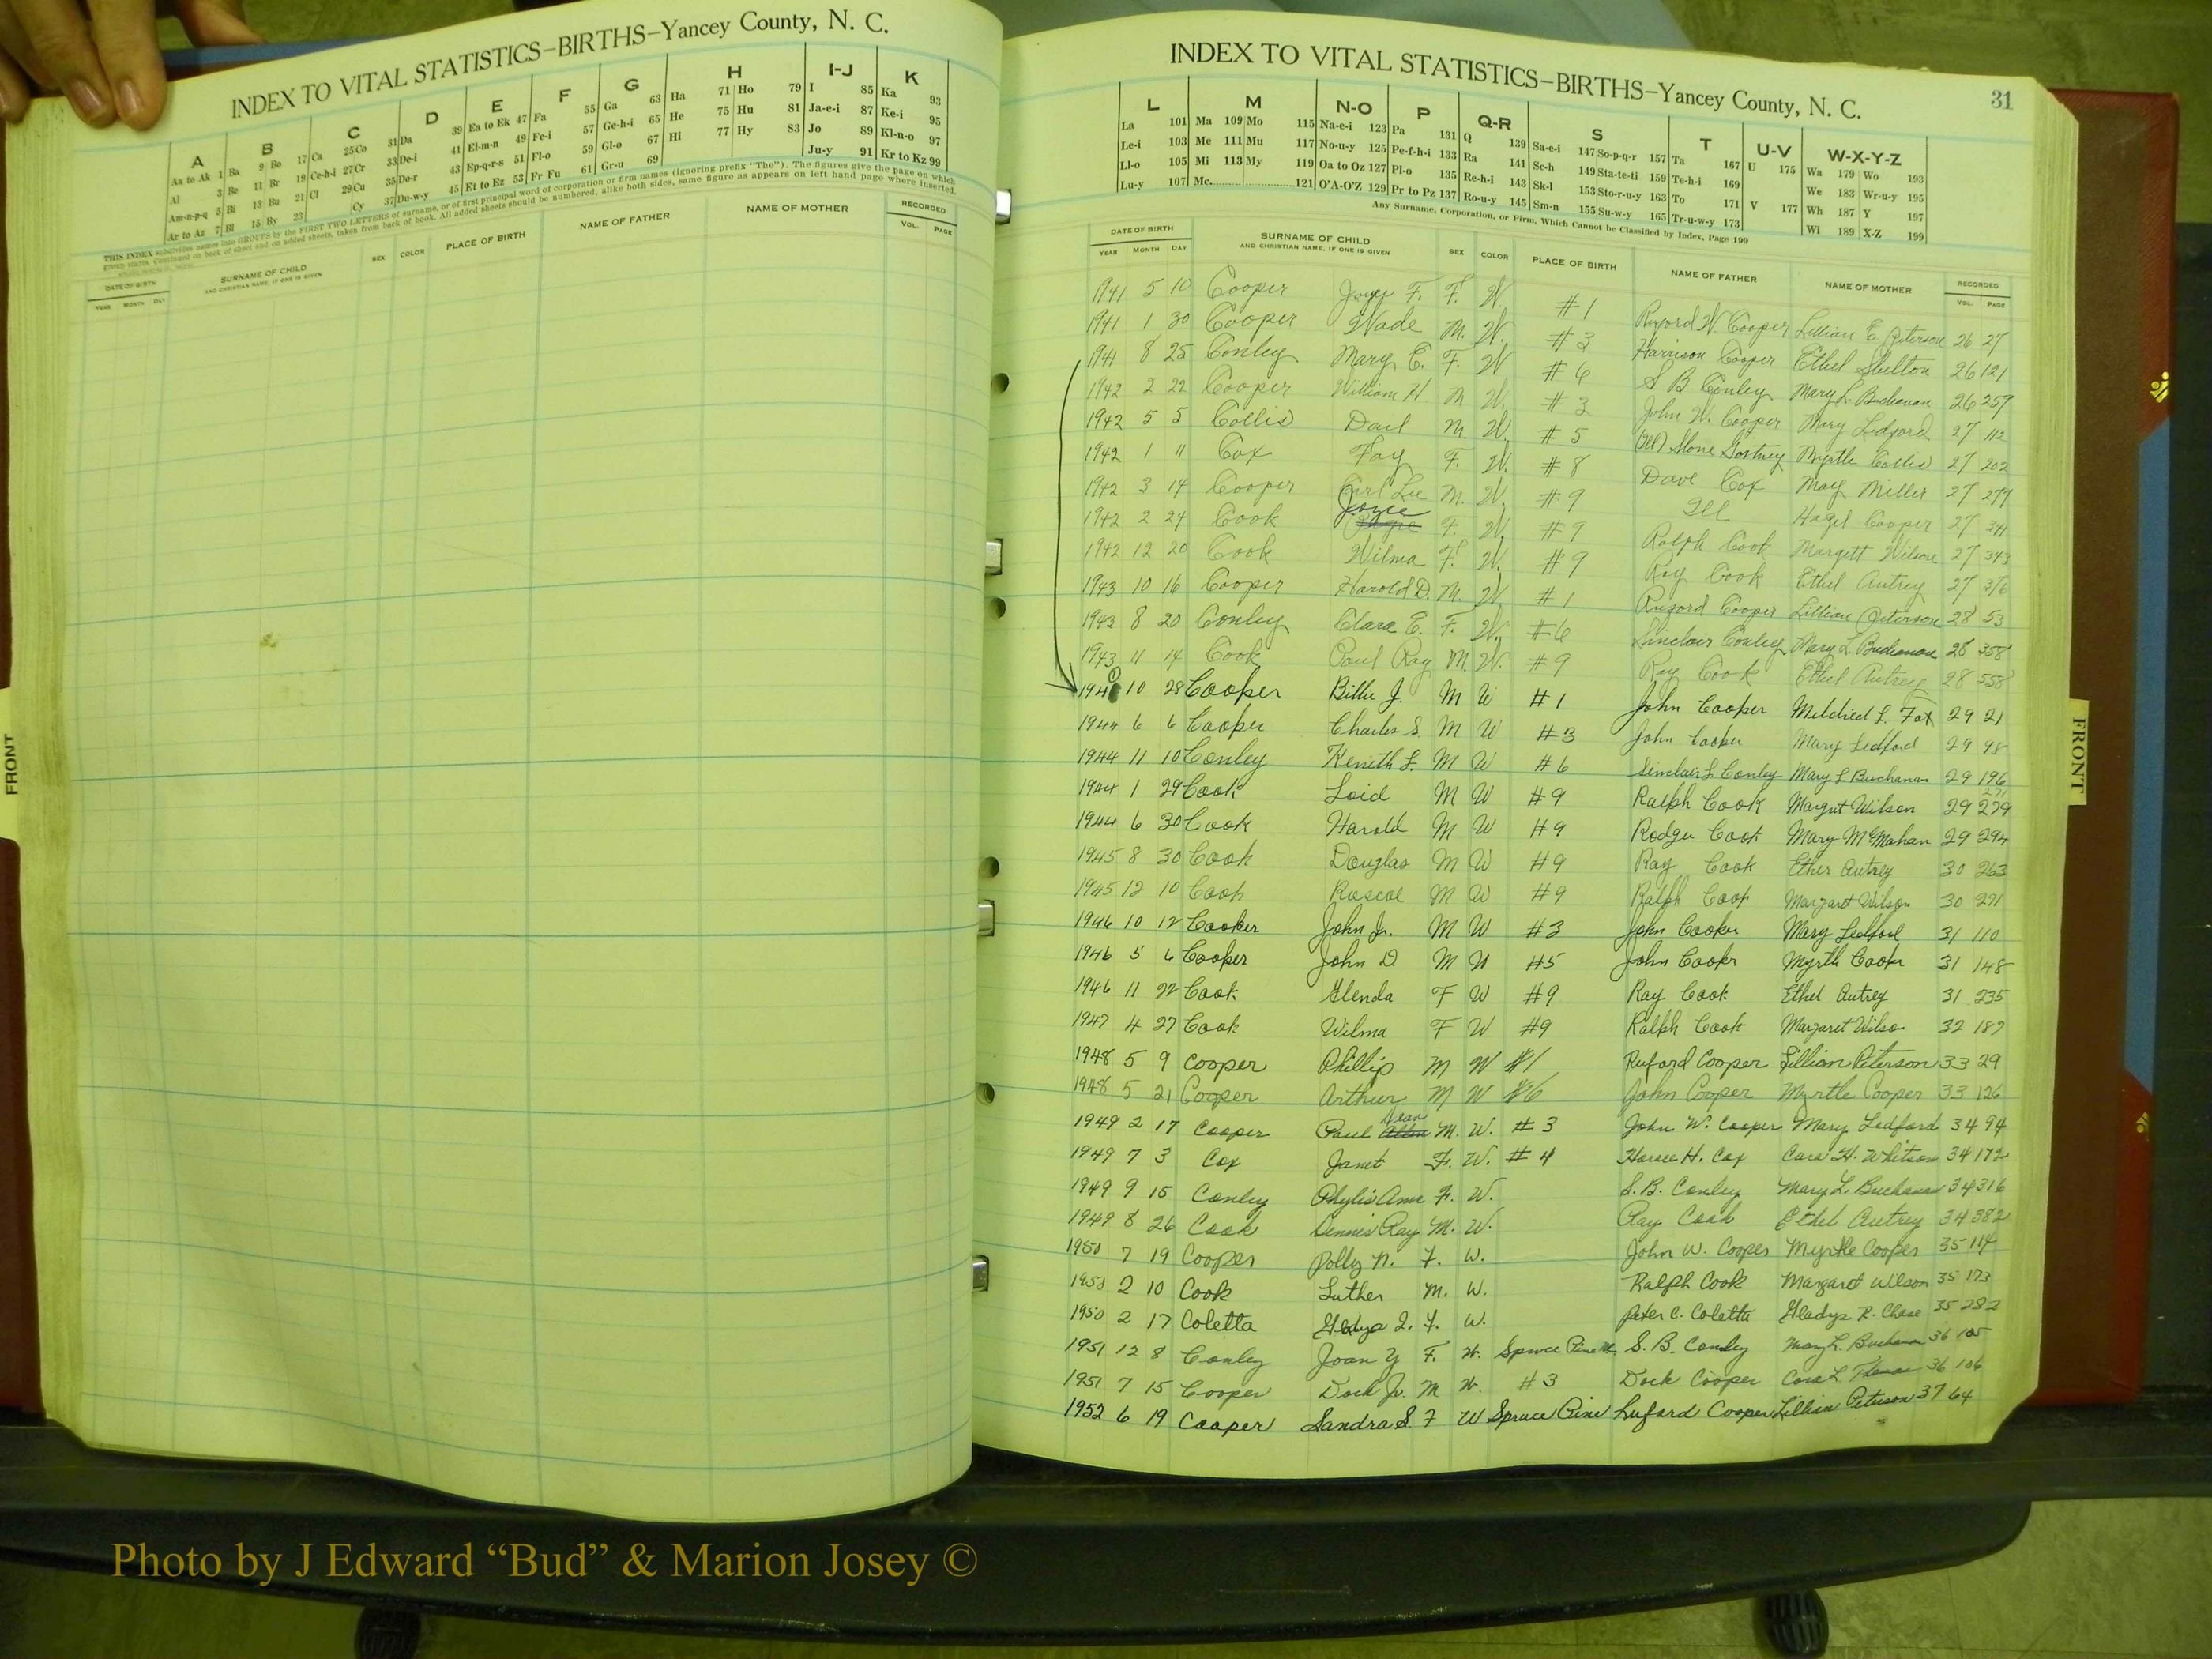 INDEX TO VITAL STATISTICS–BIRTHS–Yancey County, N. C.
A B C D E F G H I-J K
Aa to Ak 1 Ba 9 Bo 17 Ca 25 Co 31 Da 39 Ea to Ek 47 Fa 55 Ga 63 Ha 71 Ho 79 I 85 Ka 93
Al 3 Be 11 Br 19 Ce-h-i 27 Cr 33 De-i 41 El-m-n 49 Fe-i 57 Ge-h-i 65 He 75 Hu 81 Ja-e-i 87 Ke-i 95
Am-n-p-q 5 Bi 13 Bu 21 Cl 29 Cu 35 Do-r 43 Ep-q-r-s 51 Fl-o 59 Gl-o 67 Hi 77 Hy 83 Jo 89 Kl-n-o 97
Ar to Az 7 Bl 15 By 23 Cy 37 Du-w-y 45 Et to Ez 53 Fr Fu 61 Gr-u 69 Ju-y 91 Kr to Kz 99
THIS INDEX subdivides names into GROUPS by the FIRST TWO LETTERS of surname, or of first principal word of corporation or firm names (ignoring prefix "The"). The figures give the page on which
group starts. Continued on back of sheet and on added sheets, taken from back of book. All added sheets should be numbered, alike both sides, same figure as appears on left hand page where inserted.
DATE OF BIRTH SURNAME OF CHILD SEX COLOR PLACE OF BIRTH NAME OF FATHER NAME OF MOTHER RECORDED
YEAR MONTH DAY AND CHRISTIAN NAME, IF ONE IS GIVEN VOL. PAGE
FRONT
INDEX TO VITAL STATISTICS–BIRTHS–Yancey County, N. C. 31
L M N-O P Q-R S T U-V W-X-Y-Z
La 101 Ma 109 Mo 115 Na-e-i 123 Pa 131 Q 139 Sa-e-i 147 So-p-q-r 157 Ta 167 U 175 Wa 179 Wo 193
Le-i 103 Me 111 Mu 117 No-u-y 125 Pe-f-h-i 133 Ra 141 Sc-h 149 Sta-te-ti 159 Te-h-i 169 We 183 Wr-u-y 195
Ll-o 105 Mi 113 My 119 Oa to Oz 127 Pl-o 135 Re-h-i 143 Sk-l 153 Sto-r-u-y 163 To 171 V 177 Wh 187 Y 197
Lu-y 107 Mc 121 O'A-O'Z 129 Pr to Pz 137 Ro-u-y 145 Sm-n 155 Su-w-y 165 Tr-u-w-y 173 Wi 189 X-Z 199
Any Surname, Corporation, or Firm, Which Cannot be Classified by Index, Page 199
DATE OF BIRTH SURNAME OF CHILD SEX COLOR PLACE OF BIRTH NAME OF FATHER NAME OF MOTHER RECORDED
YEAR MONTH DAY AND CHRISTIAN NAME, IF ONE IS GIVEN VOL. PAGE
1941 5 10 Cooper F. F. W. #1 W. Cooper Lillian E. Peterson 26 27
1941 1 30 Cooper Wade M. W. #3 Harrison Cooper Ethel Shelton 26 121
1941 8 25 Conley Mary E. F. W #6 S B Conley Mary L Buchanan 26 257
1942 2 22 Cooper William H M W. #3 John W. Cooper Mary Ledford 27 112
1942 5 5 Collis Dail M. W. #5 Myrtle Collis 27 202
1942 1 11 Cox Fay F. W. #8 Dave Cox May Miller 27 277
1942 3 14 Cooper Carl Lee M. W. #9 Ill Hazel Cooper 27 341
1942 2 24 Cook Joyce F. W. #9 Ralph Cook Margett Wilson 27 343
1942 12 20 Cook Wilma F. W. #9 Ray Cook Ethel Autrey 27 376
1943 10 16 Cooper Harold D. M. W #1 Ruford Cooper Lillian Peterson 28 53
1943 8 20 Conley Clara E. F. W. #6 Sinclair Conley Mary L. Buchanan 28 358
1943 11 14 Cook Paul Ray M. W. #9 Ray Cook Ethel Autrey 28 558
10 28 Cooper Billie J. M W #1 John Cooper Mildred L. Fox 29 21
1944 6 6 Cooper Charles S. M W #3 John Cooper Mary Ledford 29 98
1944 11 10 Conley Kenith L. M W #6 Sinclair L Conley Mary L Buchanan 29 196
1944 1 29 Cook Loid M W #9 Ralph Cook Margut Wilson 29 279
1944 6 30 Cook Harold M W #9 Rodger Cook Mary McMahan 29 294
1945 8 30 Cook Douglas M W #9 Ray Cook Ether Autrey 30 263
1945 12 10 Cook Roscoe M W #9 Ralph Cook Margaret Wilson 30 271
1946 10 12 Cooker John Jr. M W #3 John Cooker Mary Ledford 31 110
1946 5 6 Cooper John D. M W #5 John Cooper Myrtle Cooper 31 148
1946 11 22 Cook Glenda F W #9 Ray Cook Ethel Autrey 31 235
1947 4 27 Cook Wilma F W #9 Ralph Cook Margaret Wilso 32 187
1948 5 9 Cooper Phillip M W #1 Ruford Cooper Lillian Peterson 33 29
1948 5 21 Cooper Arthur M W #6 John Cooper Myrtle Cooper 33 126
1949 2 17 Cooper Paul Allen Dean M. W. #3 John W. Cooper Mary Ledford 34 94
1949 7 3 Cox Janet F. W. #4 Horace H. Cox Cara H. Whitson 34 172
1949 9 15 Conley Phylis Ann F. W. S. B. Conley Mary L. Buchanan 34 316
1949 8 26 Cook Dennis Ray M. W. Ray Cook Ethel Autrey 34 382
1950 7 19 Cooper Polly N. F. W. John W. Cooper Myrtle Cooper 35 114
1950 2 10 Cook Luther M. W. Ralph Cook Margaret Wilson 35 173
1950 2 17 Coletta Gladys I. F. W. Peter C. Coletta Gladys R. Chase 35 282
1951 12 8 Conley Joan Y F. W. Spruce Pine S. B. Conley Mary L. Buchanan 36 105
1951 7 15 Cooper Dock Jr. M W. #3 Dock Cooper Cora L 36 106
1952 6 19 Cooper Sandra S. F W Spruce Pine Luford Cooper Lillian Peterson 37 64
FRONT
Photo by J Edward “Bud” & Marion Josey ©